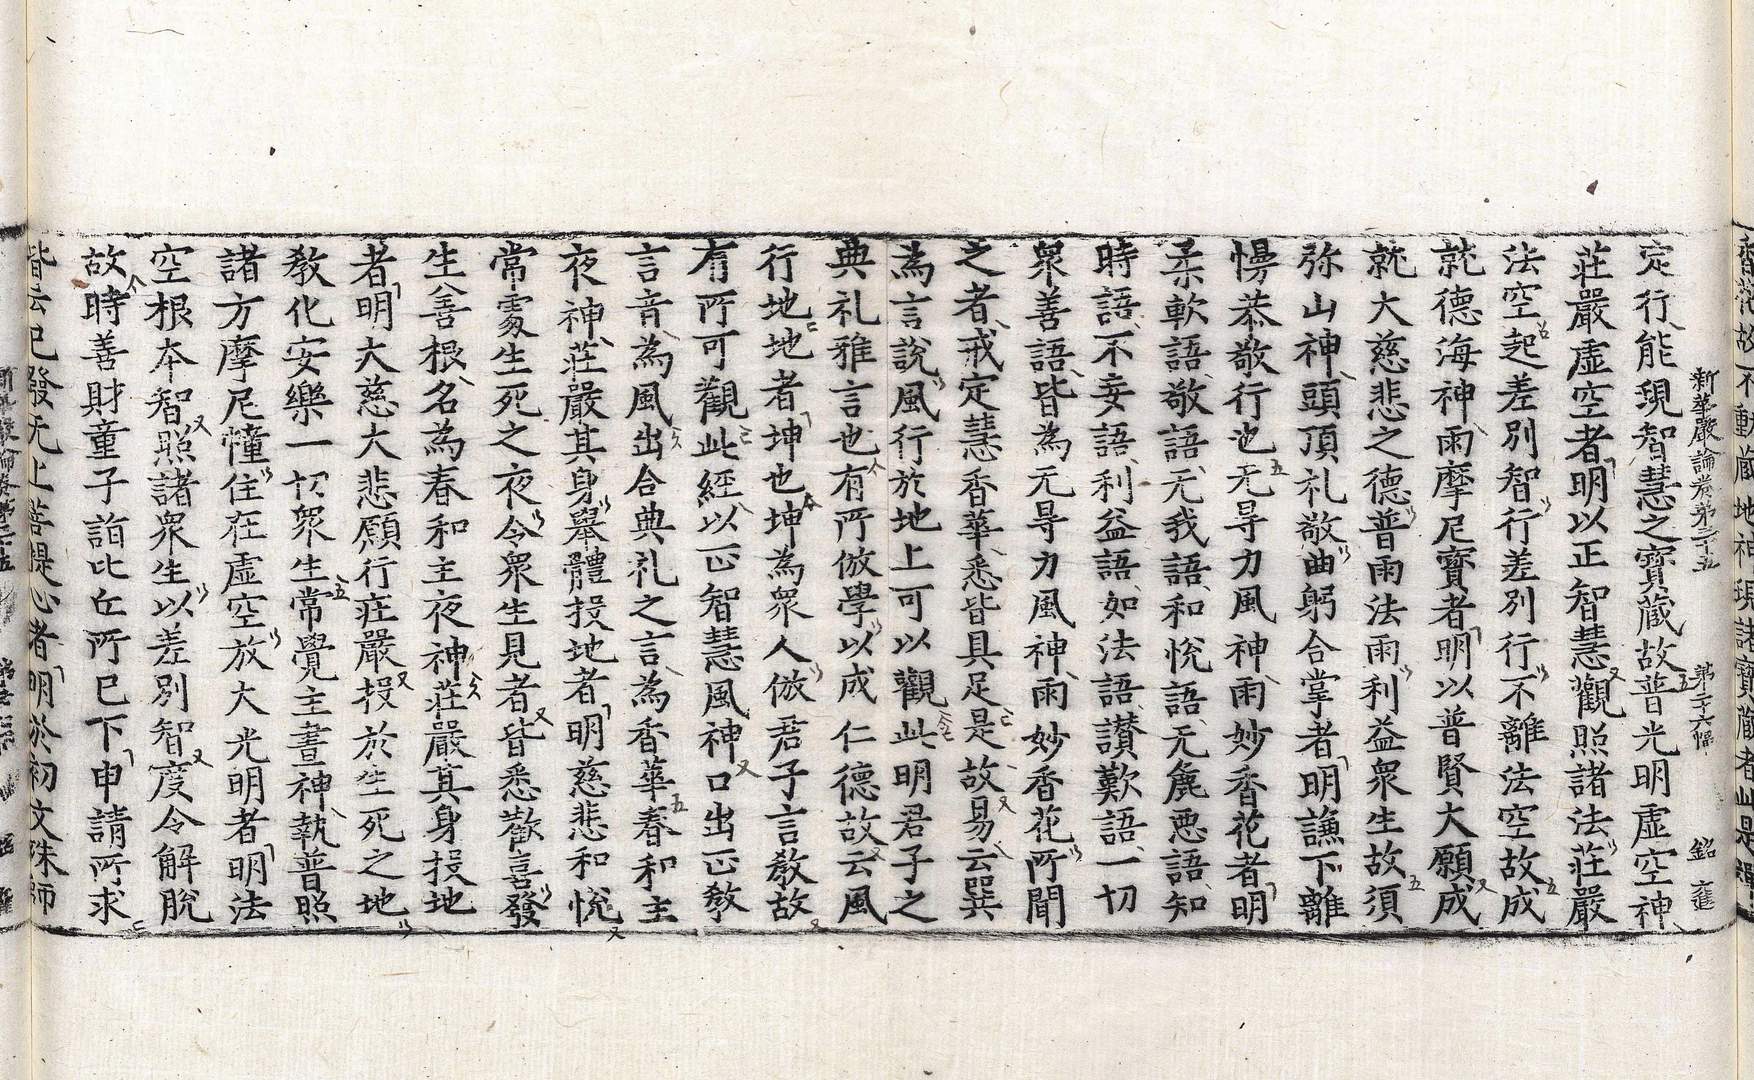 香水故不動藏地神現諸寶藏者此是禪
新華嚴論卷第三十五　第二十六幅　銘　進
定行能現智慧之寶藏故普光明虛空神
莊嚴虛空者明以正智慧觀照諸法莊嚴
法空起差別智行差別行不離法空故成
就德海神雨摩尼寶者明以普賢大願成
就大慈悲之德普雨法雨利益衆生故須
弥山神頭頂礼敬曲躬合掌者明謙下離
慢恭敬行也无㝵力風神雨妙香花者明
柔軟語敬語无我語和悅語无麁惡語知
時語不妄語利益語如法語讃歎語一切
衆善語皆為无㝵力風神雨妙香花所聞
之者戒定慧香華悉皆具足是故易云巽
為言說風行於地上可以觀此明君子之
典礼雅言也有所倣學以成仁德故云風
行地地者坤也坤為衆人倣君子言教故
有所可觀此經以正智慧風神口出正教
言音為風出合典礼之言為香華春和主
夜神莊嚴其身舉體投地者明慈悲和悅
常處生死之夜令衆生見者皆悉歡喜發
生善根名為春和主夜神莊嚴其身投地
者明大慈大悲願行莊嚴投於生死之地
教化安樂一切衆生常覺主晝神執普照
諸方摩尼幢住在虛空放大光明者明法
空根本智照諸衆生以差別智度令解脫
故時善財童子詣比丘所已下申請所求
皆云已發无上菩提心者明於初文殊師